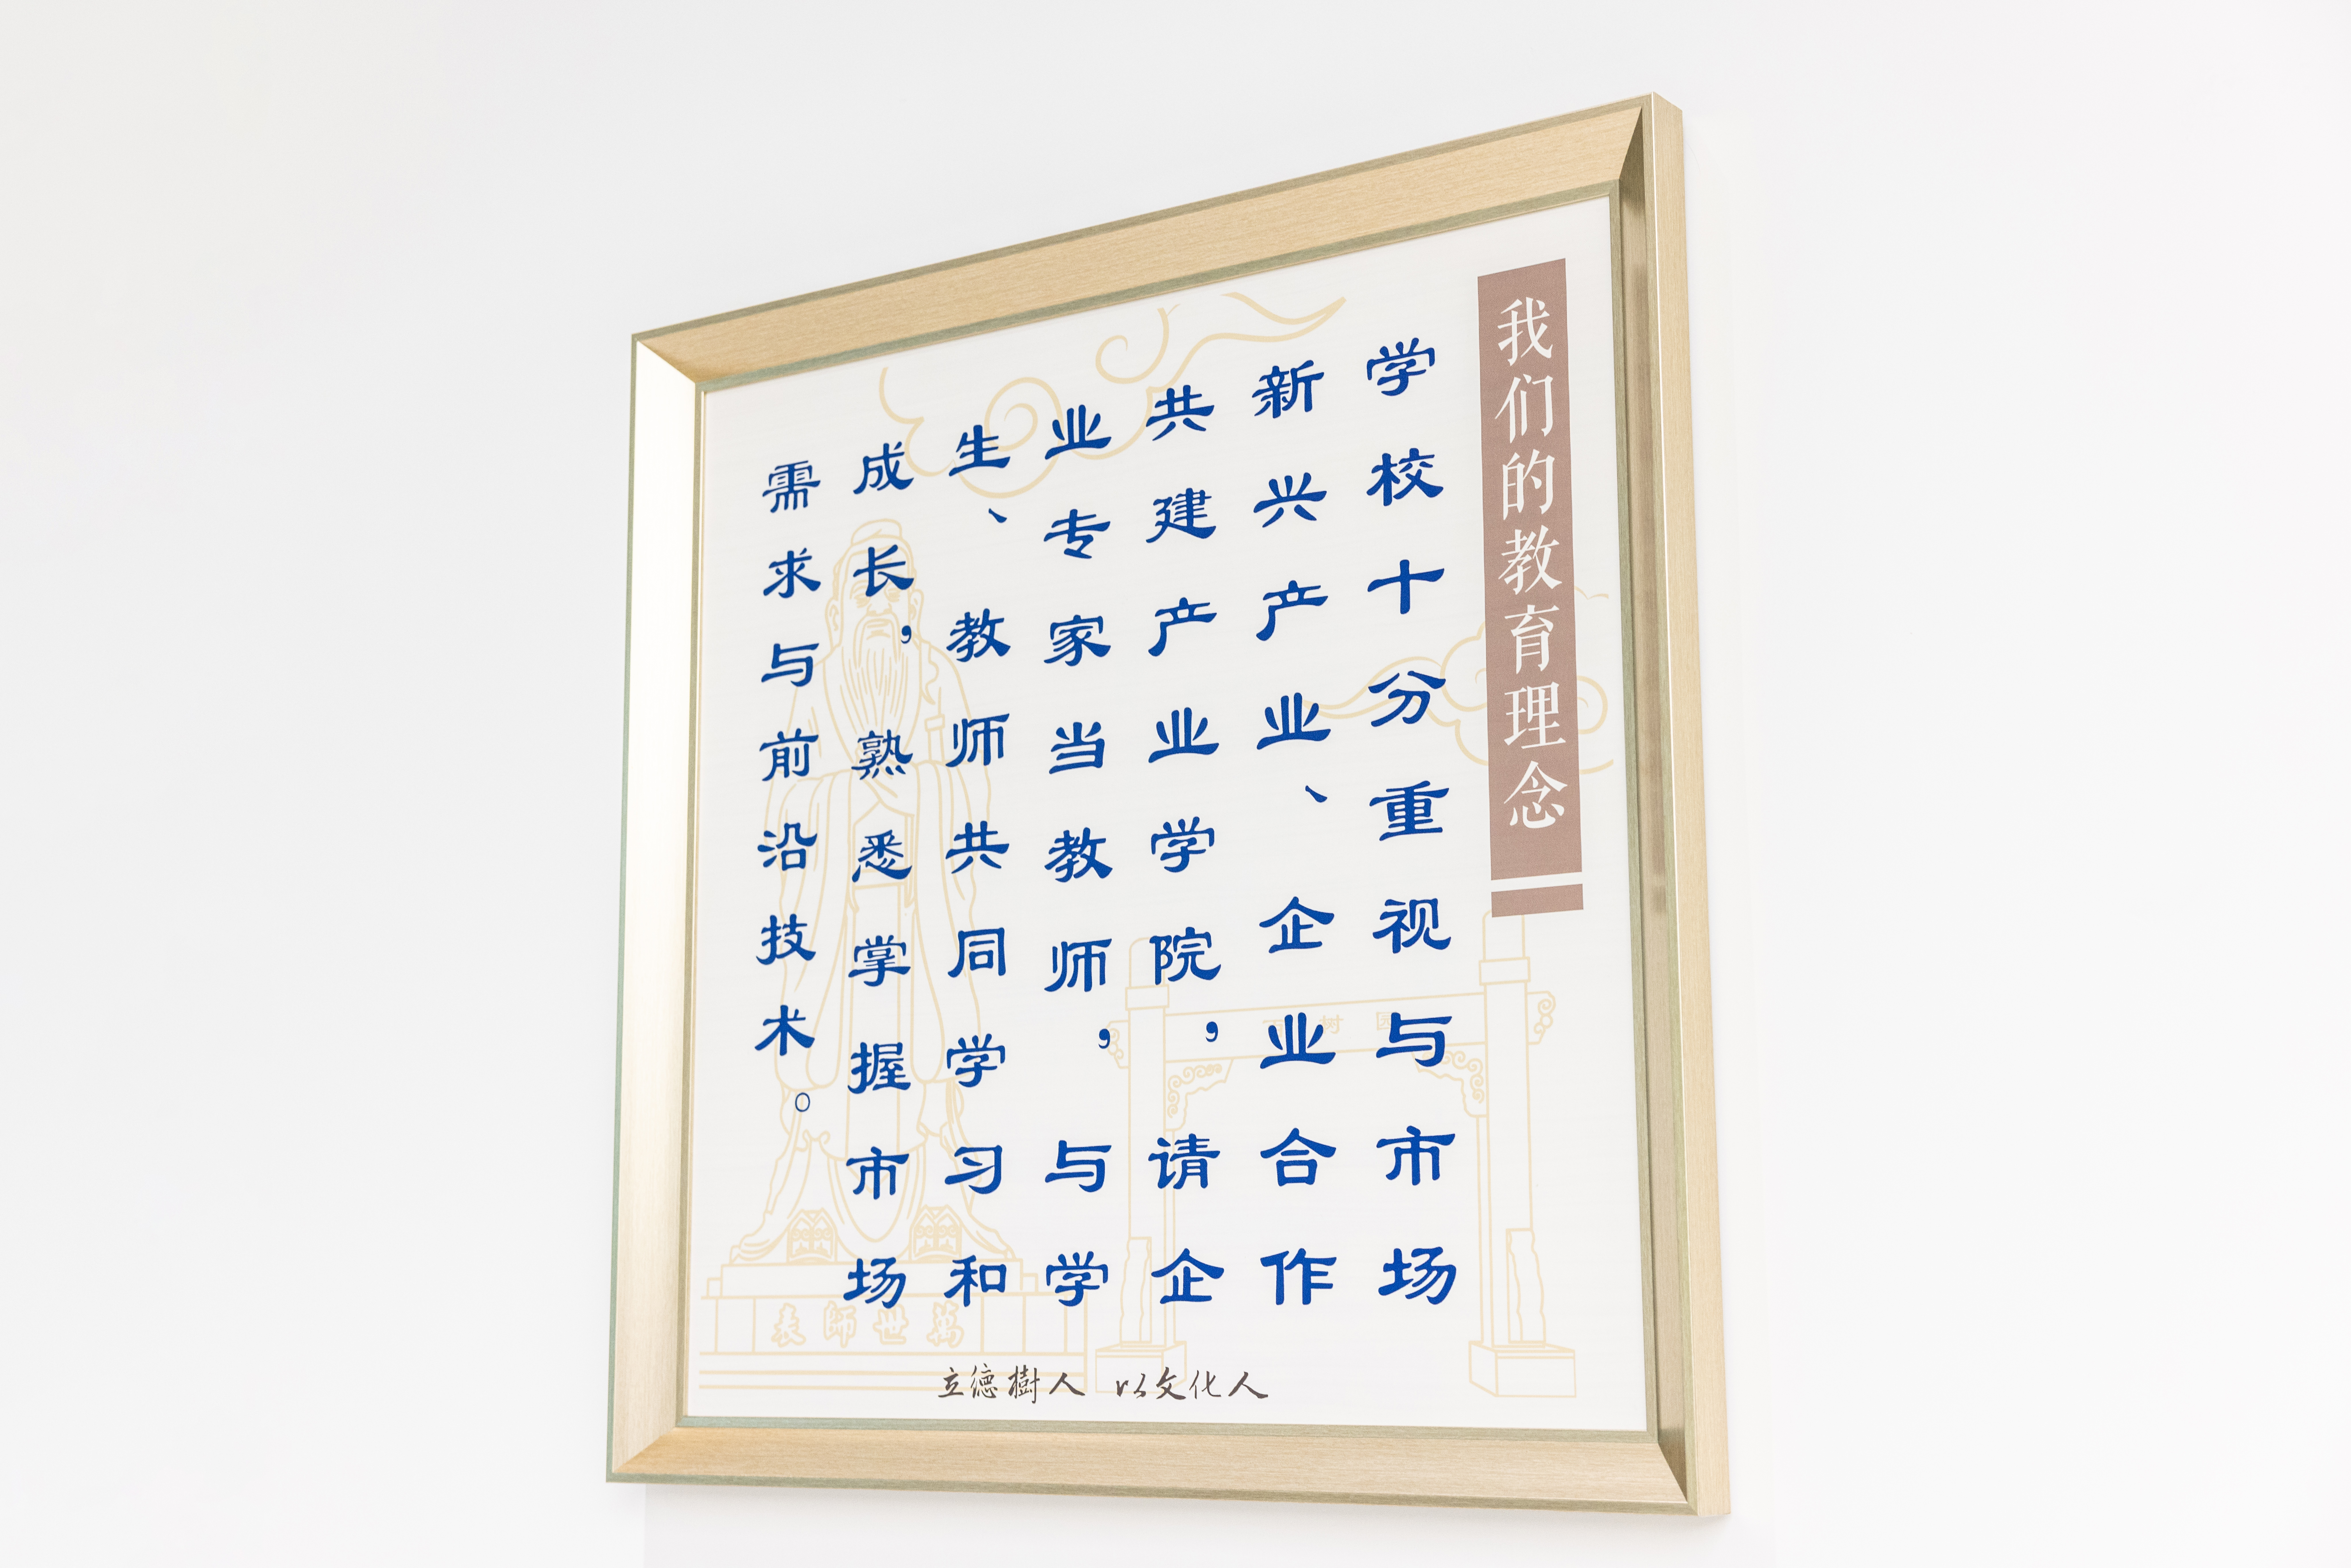 我们的教育理念
学校十分重视与市场
新兴产业、企业合作
共建产业学院，请企
业专家当教师，与学
生、教师共同学习和
成长，熟悉掌握市场
需求与前沿技术。
表師世萬
立德樹人 以文化人